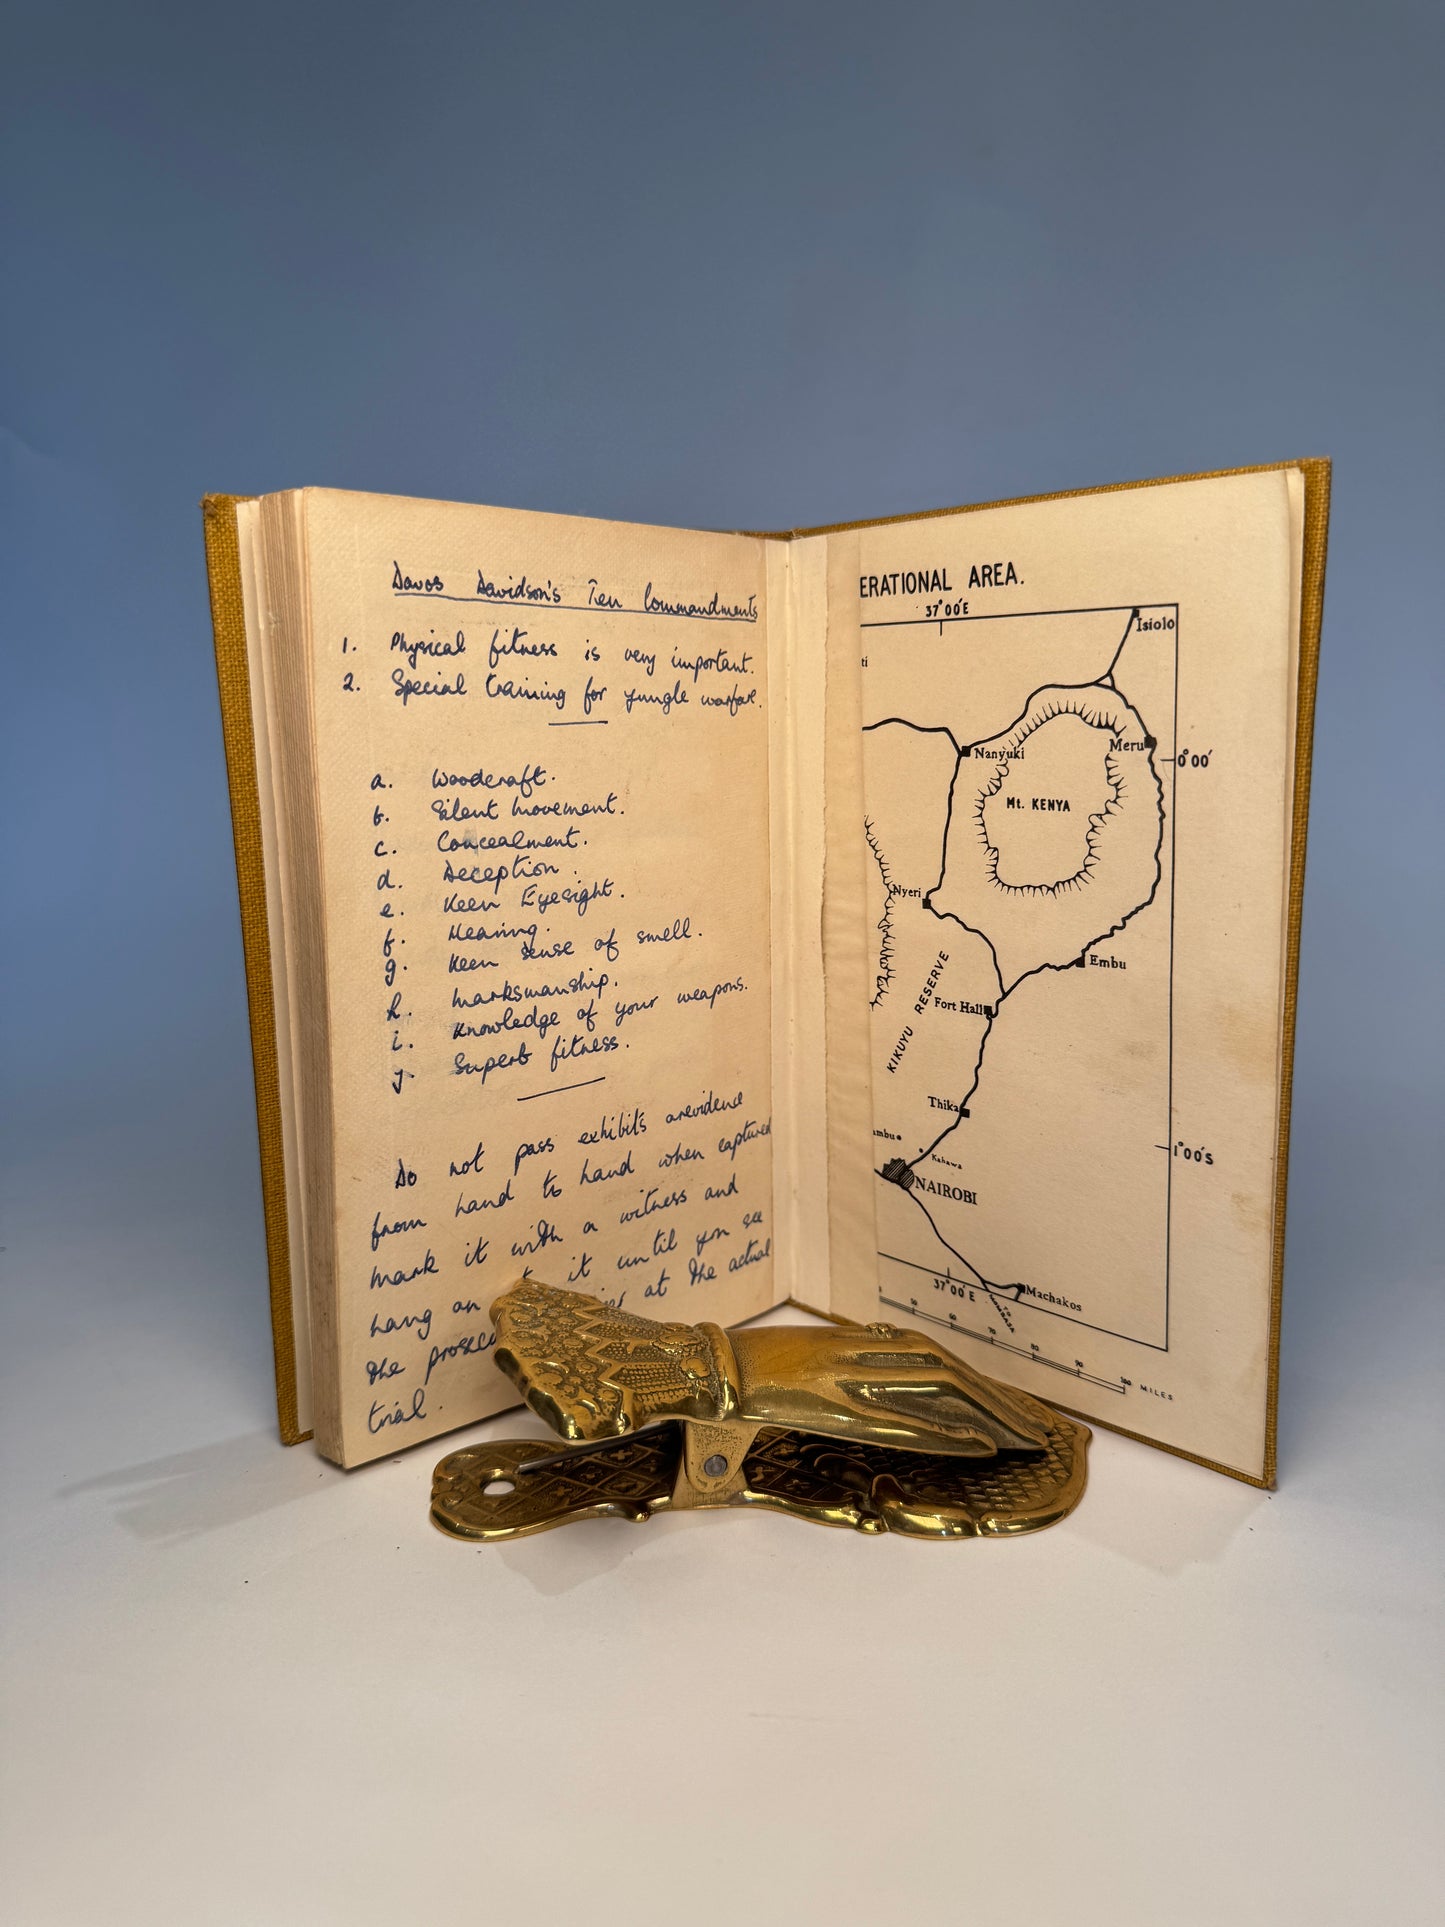 Davos Davidson's Ten Commandments
1. Physical fitness is very important.
2. Special training for jungle warfare.
a. Woodcraft.
b. Silent movement.
c. Concealment.
d. Deception.
e. Keen Eyesight.
f. Hearing.
g. Keen sense of smell.
h. Marksmanship.
i. Knowledge of your weapons.
j. Superb fitness.
Do not pass exhibits as evidence
from hand to hand when captured
mark it with a witness and
hang on it until you see
the at the actual
trial.
ERATIONAL AREA.
37°00'E
Isiolo
ti
Nanyuki
Meru
0°00'
Mt. KENYA
Nyeri
Embu
KIKUYU RESERVE
Fort Hall
Thika
ambu
Kahawa
1°00'S
NAIROBI
37°00'E
Machakos
TO MOMBASA
50 60 70 80 90 100 MILES